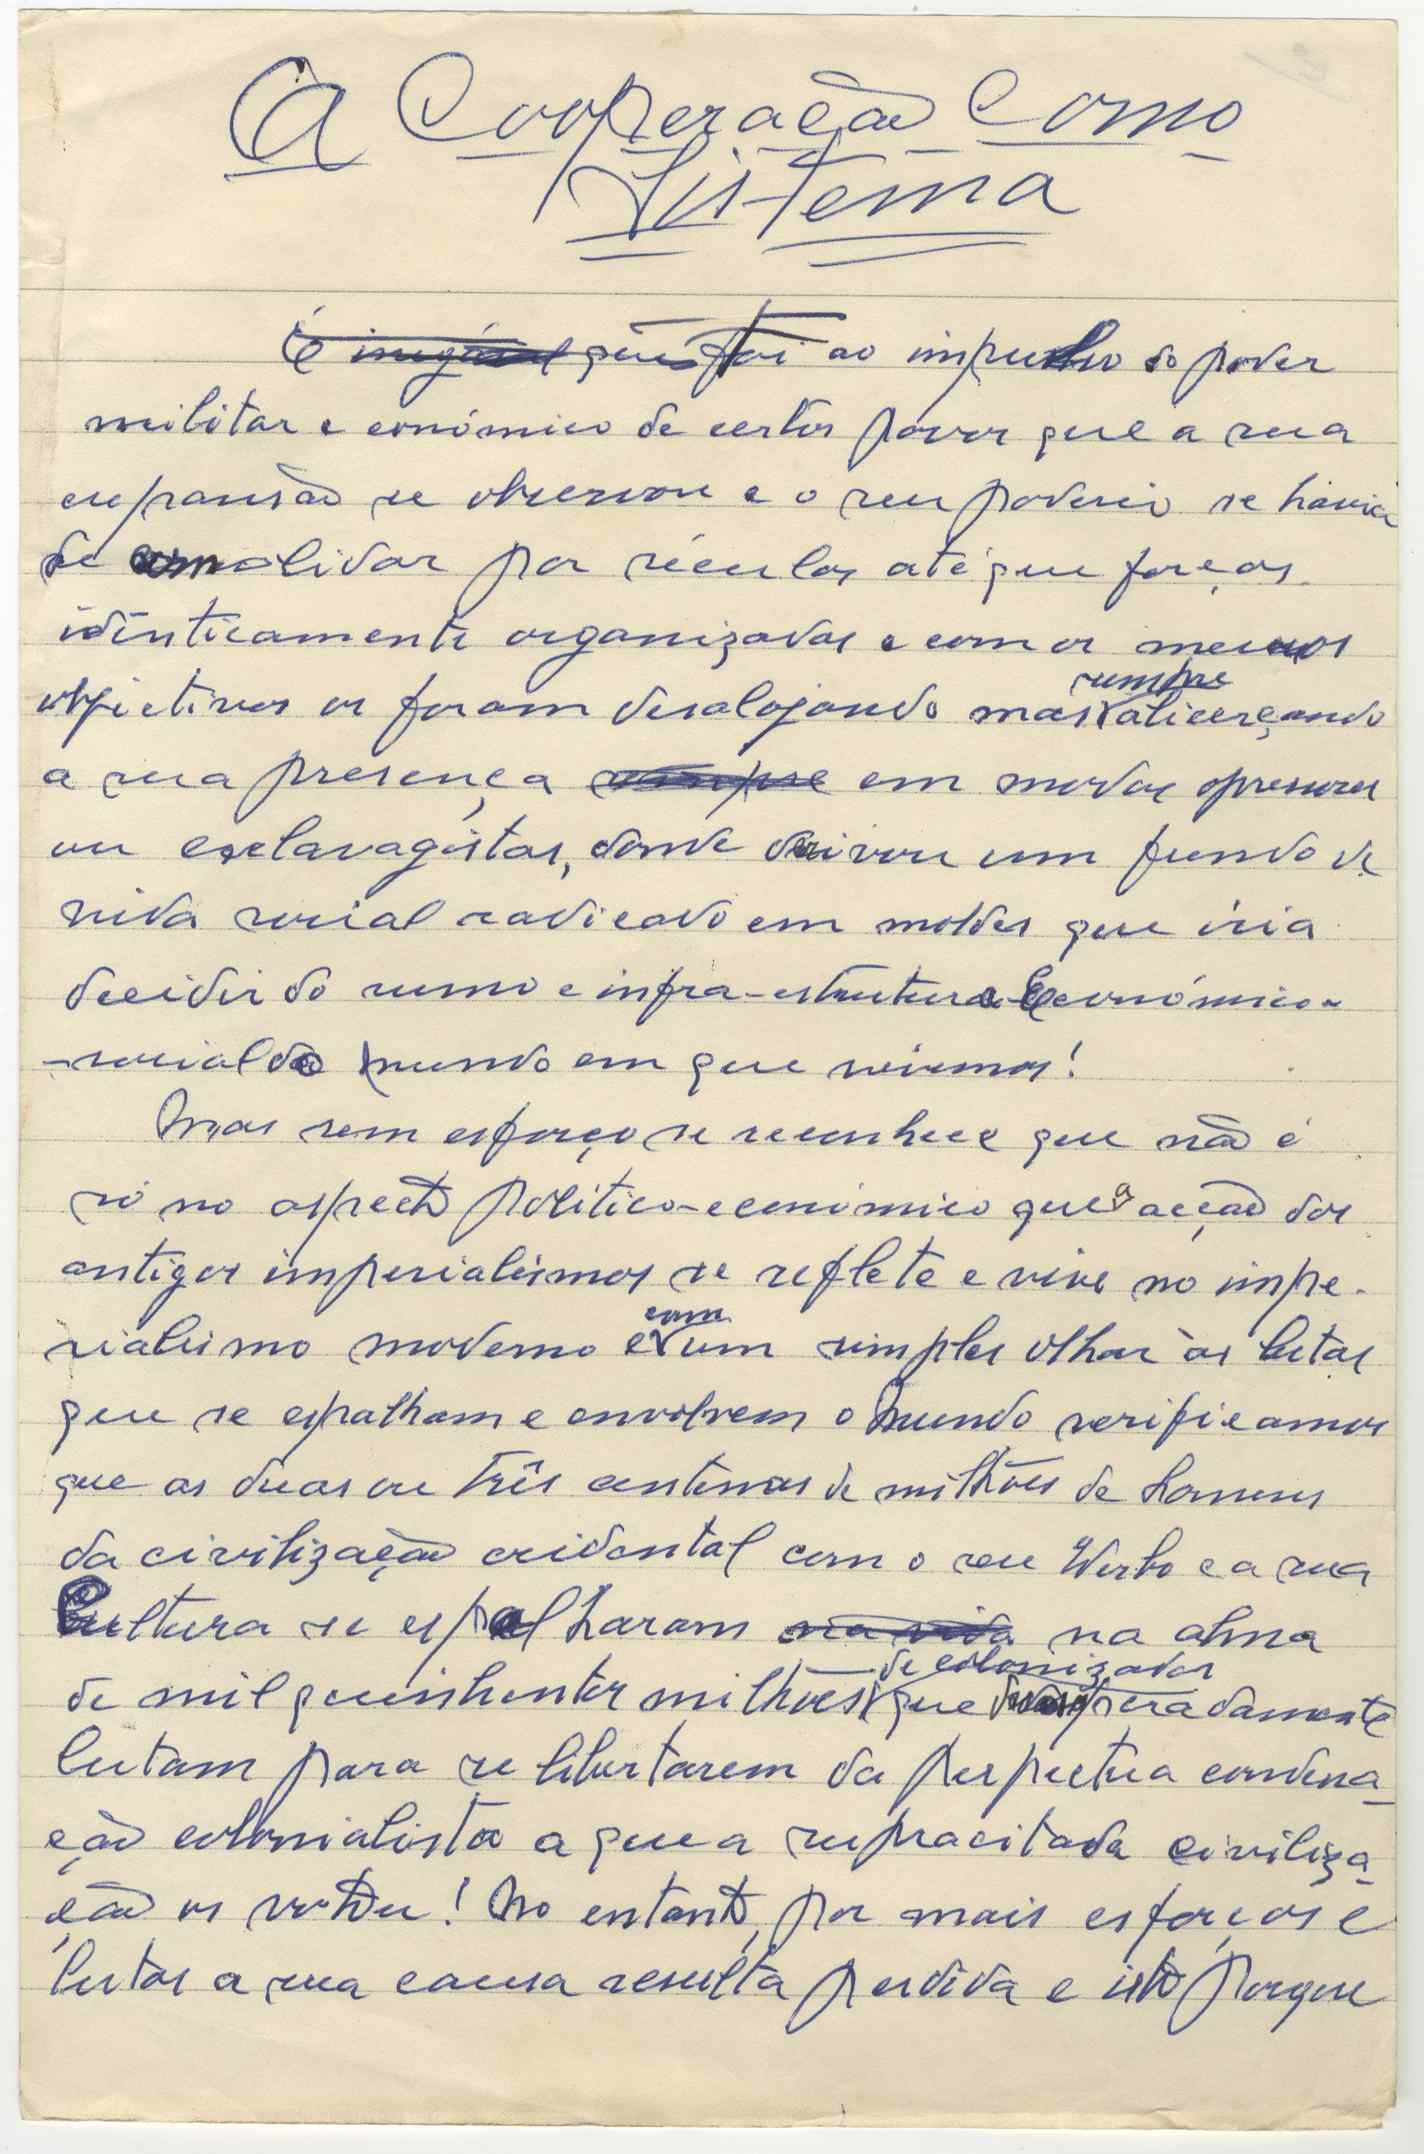 A Cooperação como
Sistema
É inegável que foi ao impulso do poder
militar e económico de certos povos que a sua
expansão se observou e o seu poderio se havia
de consolidar por séculos até que forças
idênticamente organizadas e com os mesmos
sempre
objectivos os foram desalojando mas alicerçando
a sua presença sempre em modos opressores
ou esclavagistas, donde derivou um fundo de
vida social radicado em moldes que iria
decidir do rumo e infra-estrutura económico-
-social do mundo em que vivemos!
Mas sem esforço se reconhece que não é
só no aspecto político-económico que a acção dos
antigos imperialismos se reflete e vive no impe-
com
rialismo moderno e um simples olhar às lutas
que se espalham e envolvem o mundo verificamos
que as duas ou três centenas de milhões de homens
da civilização ocidental com o seu Verbo e a sua
Cultura se espalharam na vida na alma
de colonizados
de mil quinhentos milhões que desesperadamente
lutam para se libertarem da perpectua condena-
ção colonialista a que a supracitada civiliza-
ção os votou! No entanto, por mais esforços e
lutas a sua causa resulta perdida e isto porque